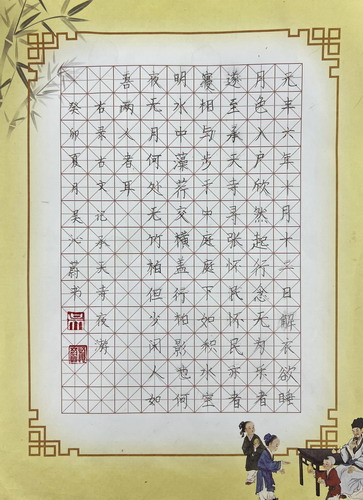 元丰六年十月十二日解衣欲睡
月色入户欣然起行念无为乐者
遂至承天寺寻张怀民怀民亦者
寝相与步于中庭庭下如积水空
明水中藻荇交横盖行柏影也何
夜无月何处无竹柏但少闲人如
吾两人者耳
右录古文记承天寺夜游
癸卯夏月吴沁蔚书